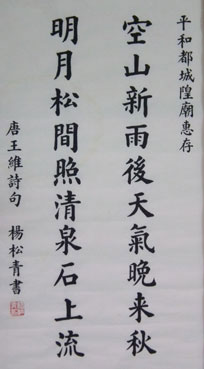 平和都城隍廟惠存
空山新雨後天氣晚来秋
明月松間照清泉石上流
唐王維詩句 楊松青書